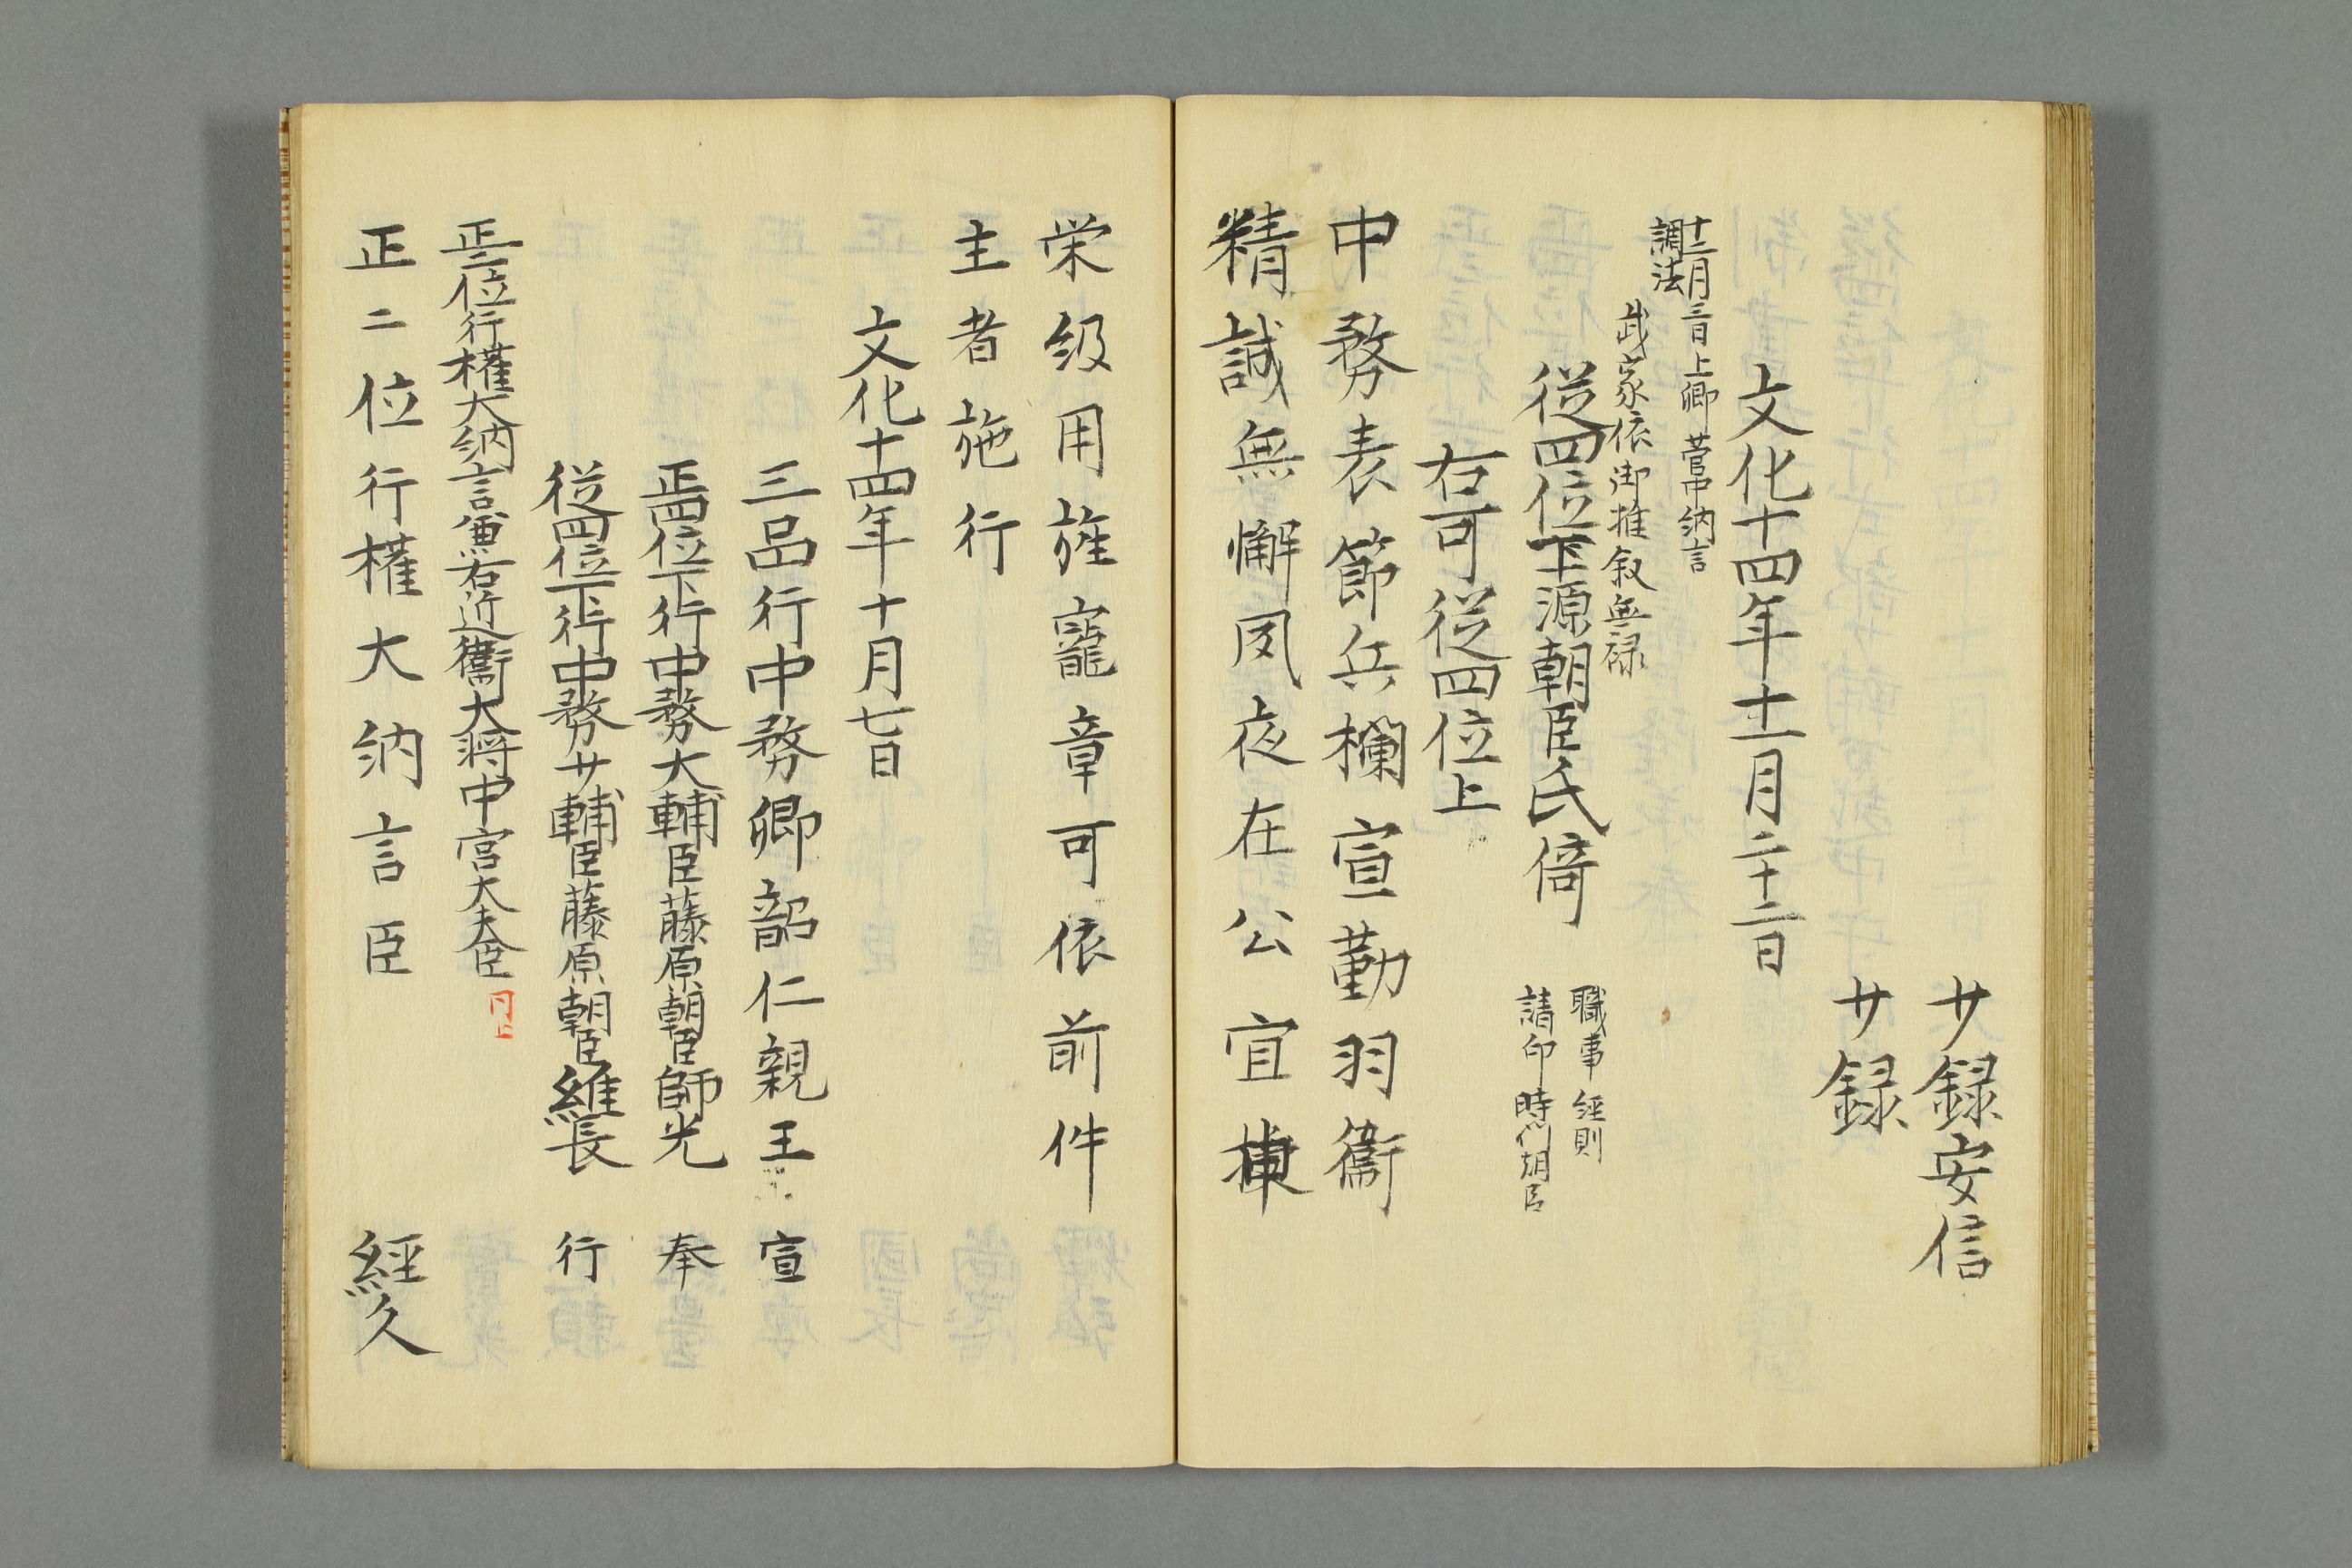 廾録安信
廾録
文化十四年十一月二十二日
十二月三日上卿菅中納言
調法
武家依御推叙無禄
従四位下源朝臣氏倚
職事 経則
請印 時
右可従四位上
中務表節兵欄宣勤羽衞
精誠無懈夙夜在公宜
栄級用旌寵章可依前件
主者施行
文化十四年十月七日
三品行中務卿韶仁親王 宣
正四位下行中務大輔臣藤原朝臣師光 奉
従四位下行中務廾輔臣藤原朝臣維長 行
正二位行権大納言兼右近衞大将中宮大夫臣
正二位行権大納言臣 経久